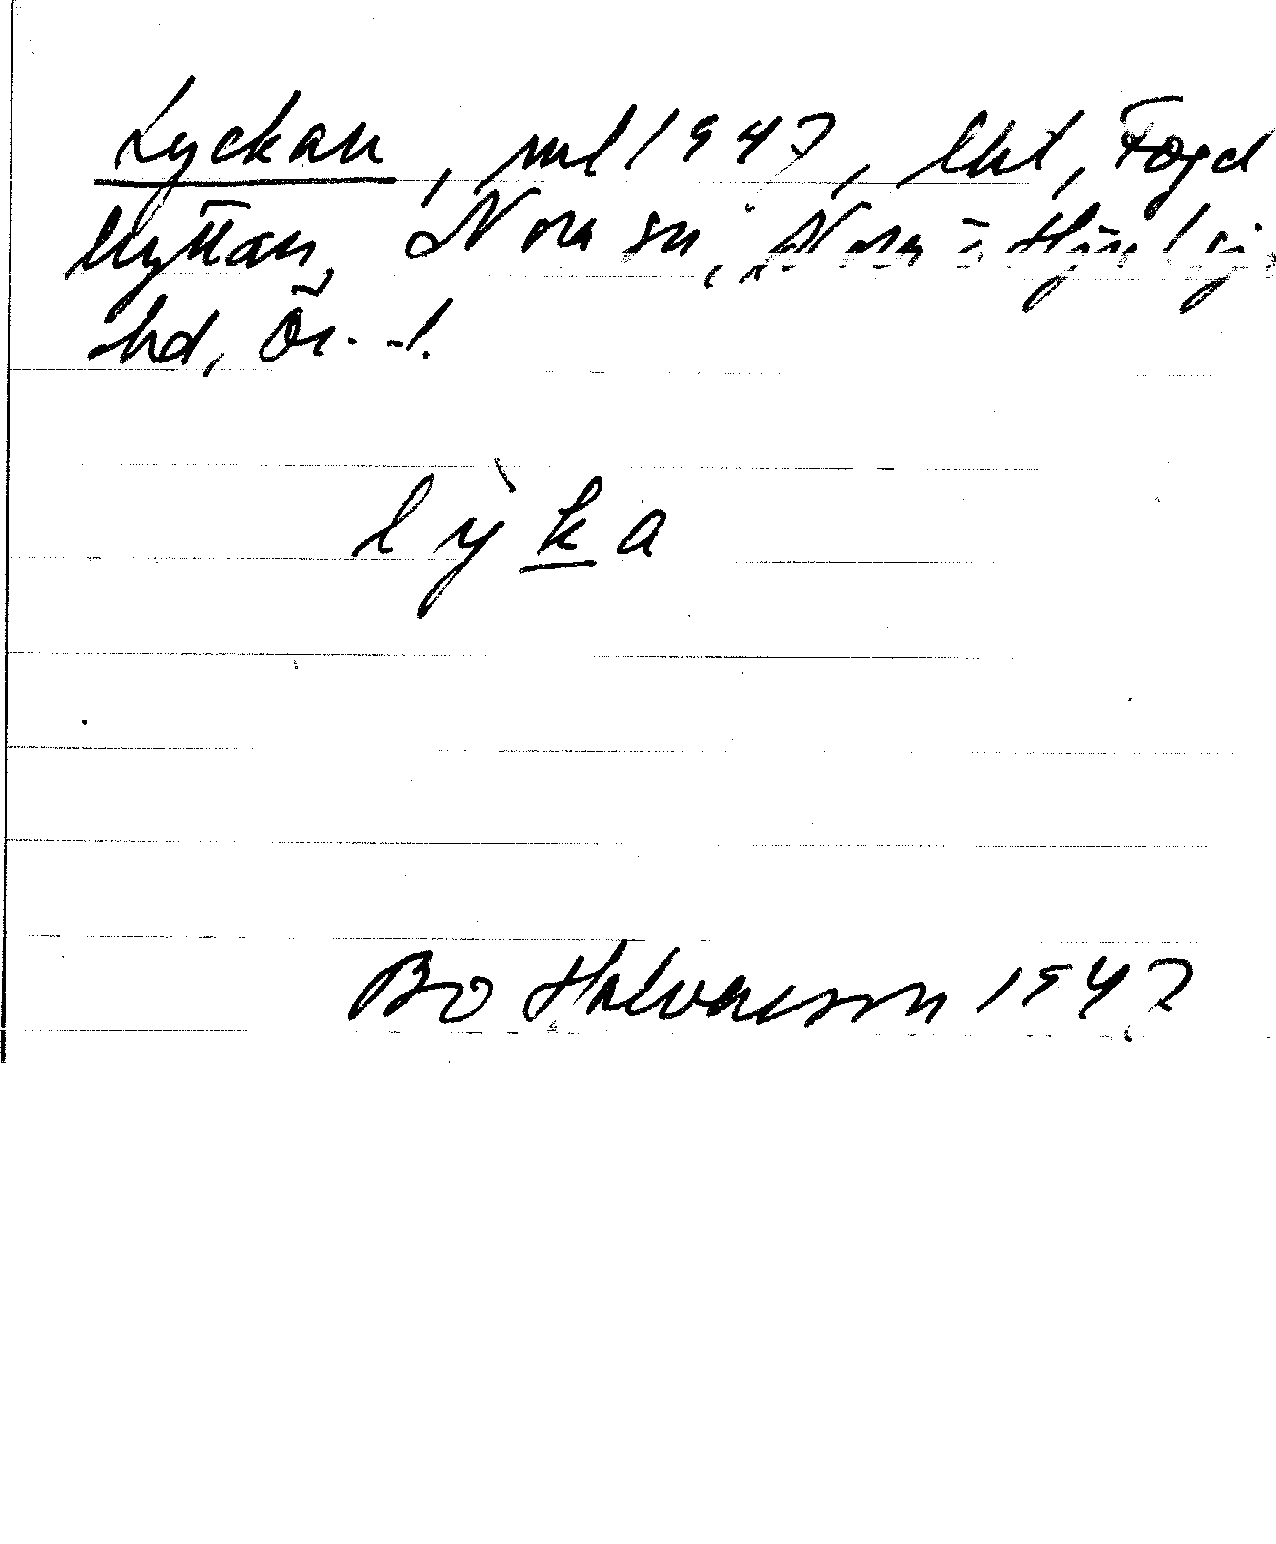 Lyckan, ml 1947, lht, Fogd
hyttan, Nora sn, Nora o Hjul sj
hd, Ör. l.
lỳka
Bo Halvarsson 1947